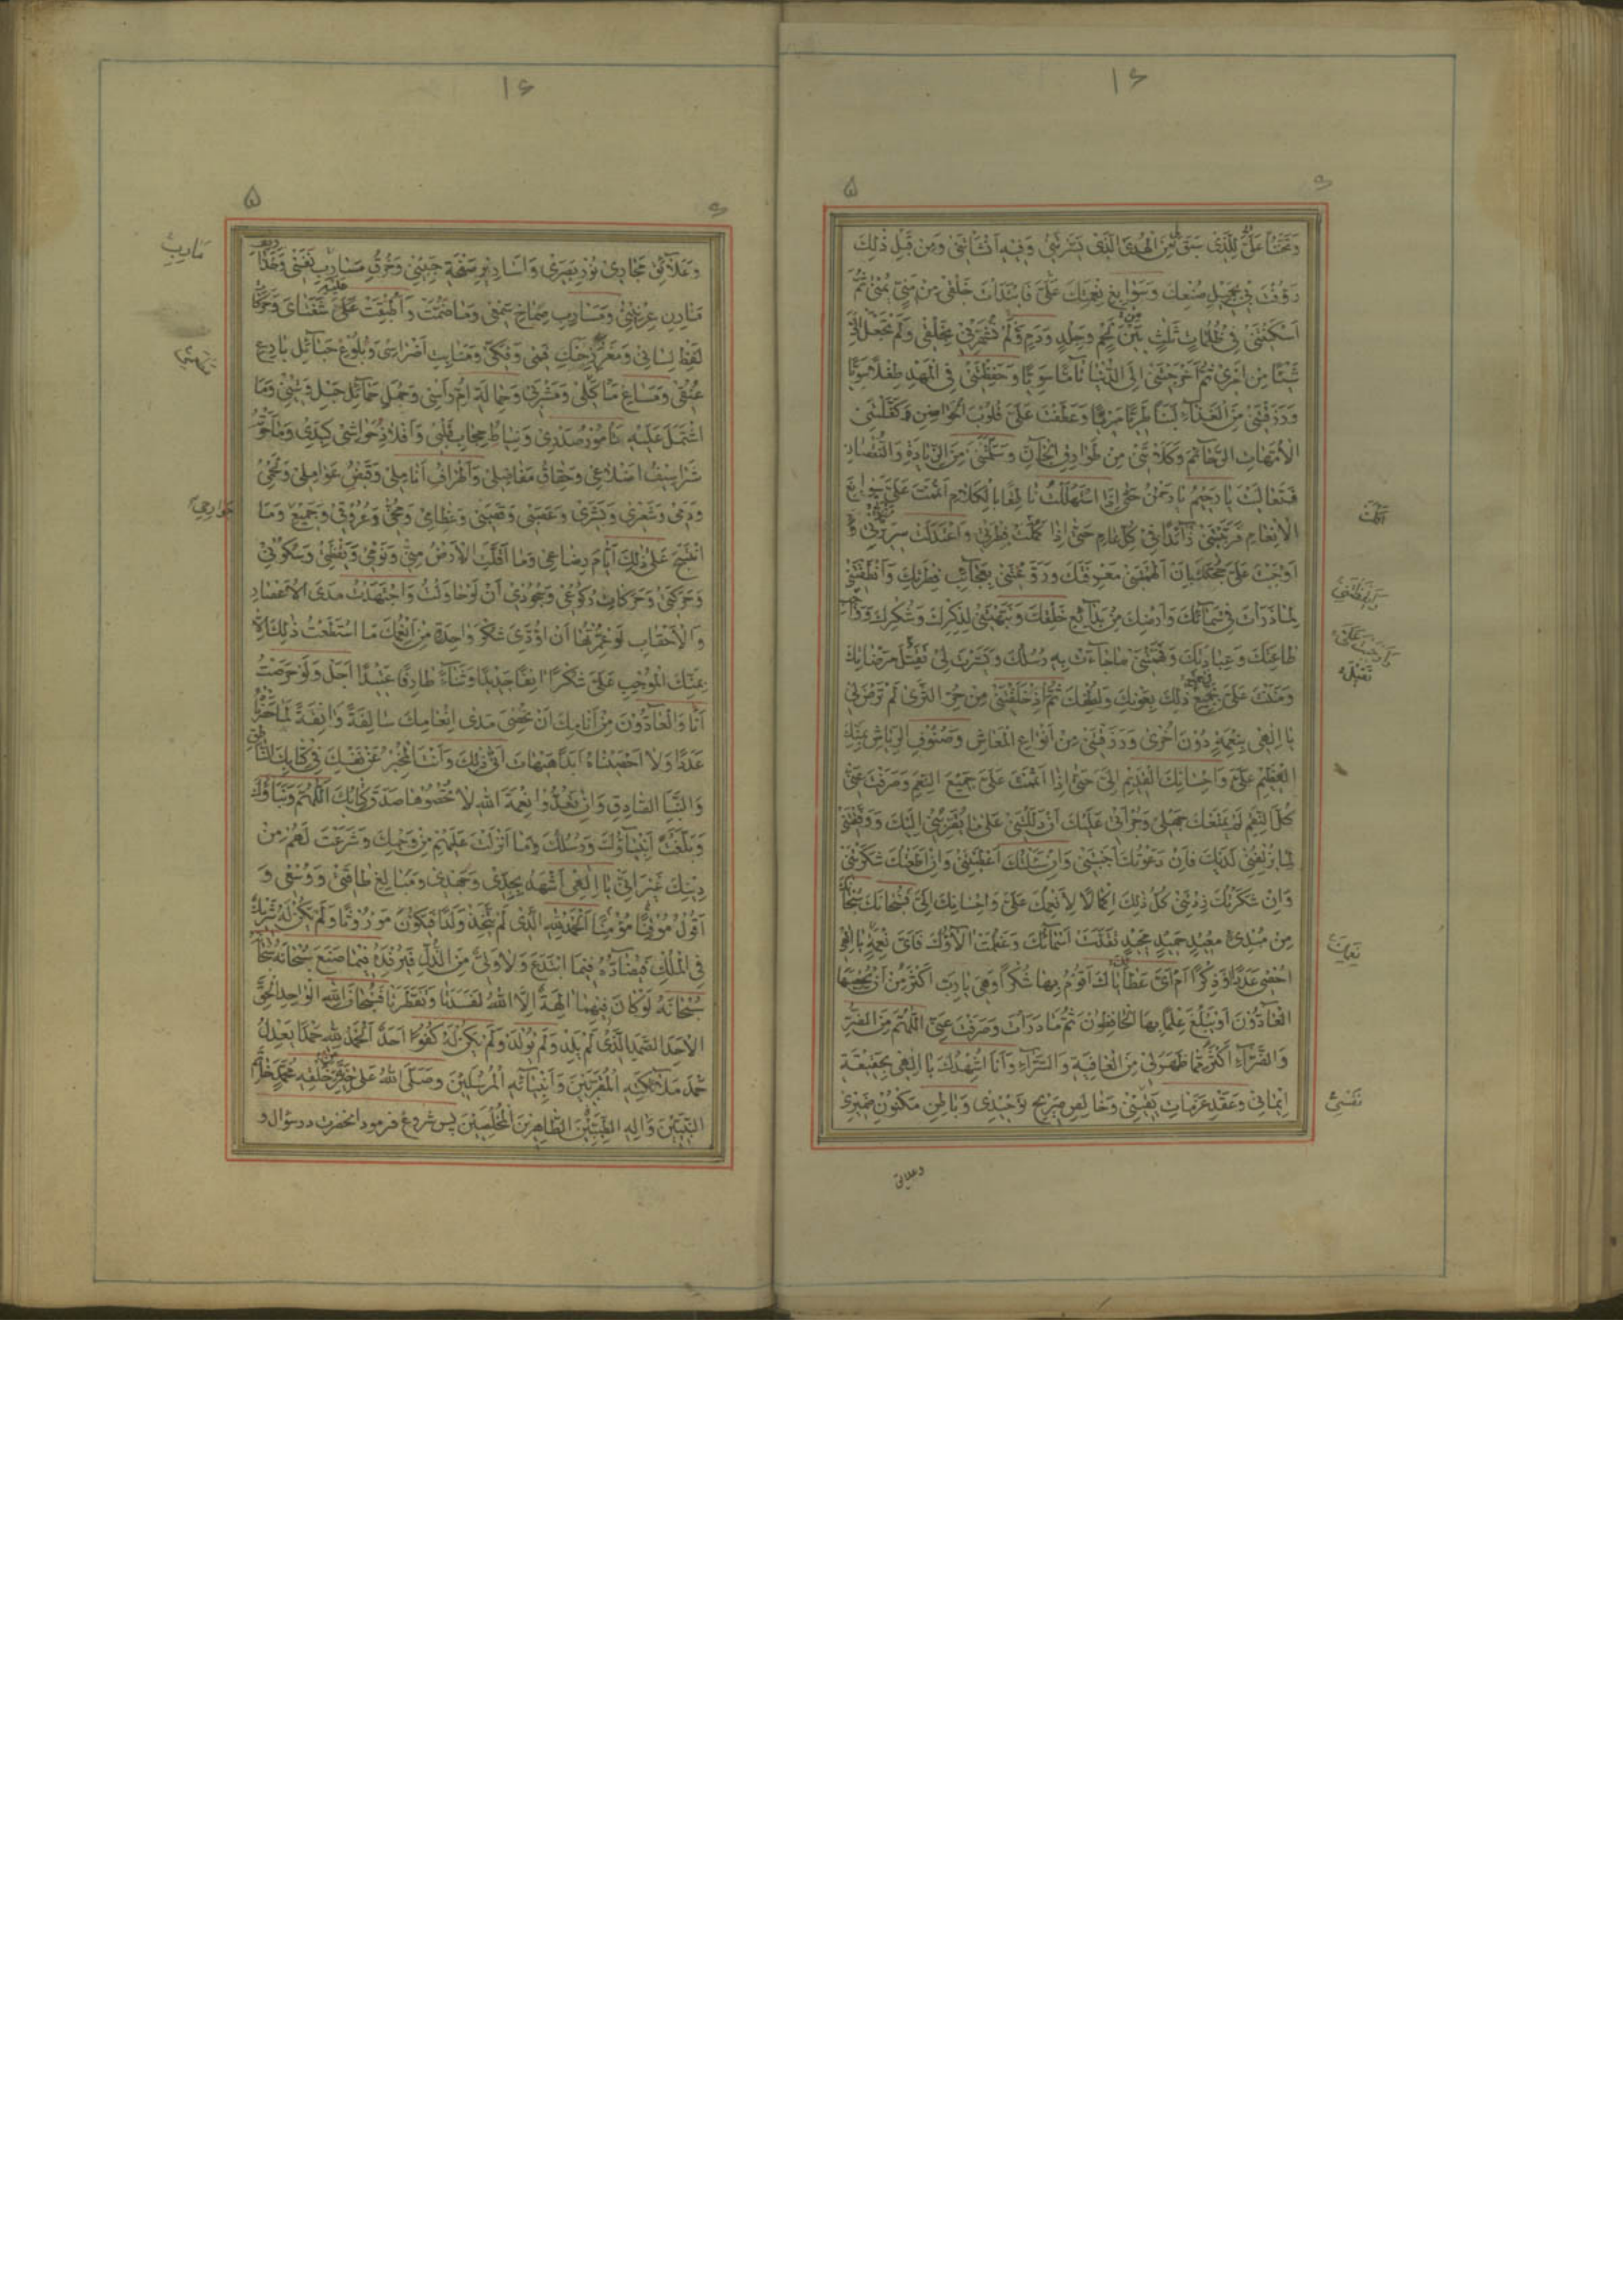 ۱۶
۵
۶
وَتَحَنُّناً عَلَيَّ لِلَّذي سَبَقَ لي مِنَ الْهُدَى الَّذي يَسَّرْتَني وَفيهِ اَنْشَأْتَني وَمِنْ قَبْلِ ذٰلِكَ
رَؤُفْتَ بي بِجَميلِ صُنْعِكَ وَسَوابِغِ نِعَمِكَ فَابْتَدَعْتَ خَلْقي مِنْ مَنِيٍّ يُمْنىٰ ثُمَّ
اَسْكَنْتَني في ظُلُماتٍ ثَلٰثٍ بَيْنَ لَحْمٍ وَجِلْدٍ وَدَمٍ وَلَمْ تُشَهِّرْني بِخَلْقي وَلَمْ تَجْعَلْ اِلَيَّ
شَيْئاً مِنْ اَمْري ثُمَّ اَخْرَجْتَني اِلَى الدُّنْيا تآمّاً سَوِيّاً وَحَفِظْتَني فِي الْمَهْدِ طِفْلاً صَبِيّاً
وَرَزَقْتَني مِنَ الْغَذآءِ لَبَناً مَرِيّاً وَعَطَفْتَ عَلَيَّ قُلُوبَ الْحَواضِنِ وَكَفَّلْتَني
الْاُمَّهاتِ الرَّحآئِمَ وَكَلَأْتَني مِنْ طَوارِقِ الْجآنِّ وَسَلَّمْتَني مِنَ الزِّيادَةِ وَالنُّقْصانِ
فَتَعالَيْتَ يا رَحيمُ يا رَحْمٰنُ حَتّىٰ اِذَا اسْتَهْلَلْتُ ناطِقاً بِالْكَلامِ اَتْمَمْتَ عَلَيَّ سَوابِغَ
الْاِنْعامِ فَرَبَّيْتَني زآئِداً في كُلِّ عامٍ حَتّىٰ اِذا كَمُلَتْ فِطْرَتي وَاعْتَدَلَتْ سَريرَتي
اَوْجَبْتَ عَلَيَّ حُجَّتَكَ بِاَنْ اَلْهَمْتَني مَعْرِفَتَكَ وَرَوَّعْتَني بِعَجآئِبِ فِطْرَتِكَ وَاَنْطَقْتَني
لِما ذَرَأْتَ في سَمآئِكَ وَاَرْضِكَ مِنْ بَدآئِعِ خَلْقِكَ وَنَبَّهْتَني لِذِكْرِكَ وَشُكْرِكَ وَواجِبِ
طاعَتِكَ وَعِبادَتِكَ وَفَهَّمْتَني ما جآءَتْ بِهِ رُسُلُكَ وَيَسَّرْتَ لي تَقَبُّلَ مَرْضاتِكَ
وَمَنَنْتَ عَلَيَّ في جَميعِ ذٰلِكَ بِعَوْنِكَ وَلُطْفِكَ ثُمَّ اِذْ خَلَقْتَني مِنْ حُرِّ الثَّرىٰ لَمْ تَرْضَ لي
يا اِلٰهي بِنِعْمَةٍ دُونَ اُخْرىٰ وَرَزَقْتَني مِنْ اَنْواعِ الْمَعاشِ وَصُنُوفِ الرِّياشِ بِمَنِّكَ
الْعَظيمِ عَلَيَّ وَاِحْسانِكَ الْقَديمِ اِلَيَّ حَتّىٰ اِذا اَتْمَمْتَ عَلَيَّ جَميعَ النِّعَمِ وَصَرَفْتَ عَنّي
كُلَّ النِّقَمِ لَمْ يَمْنَعْكَ جَهْلي وَجُرْأَتي عَلَيْكَ اَنْ دَلَلْتَني عَلىٰ ما يُقَرِّبُني اِلَيْكَ وَوَفَّقْتَني
لِما يُزْلِفُني لَدَيْكَ فَاِنْ دَعَوْتُكَ اَجَبْتَني وَاِنْ سَئَلْتُكَ اَعْطَيْتَني وَاِنْ اَطَعْتُكَ شَكَرْتَني
وَاِنْ شَكَرْتُكَ زِدْتَني كُلُّ ذٰلِكَ اِكْمالاً لِاَنْعُمِكَ عَلَيَّ وَاِحْسانِكَ اِلَيَّ فَسُبْحانَكَ سُبْحانَكَ
مِنْ مُبْدِئٍ مُعيدٍ حَميدٍ مَجيدٍ تَقَدَّسَتْ اَسْمآئُكَ وَعَظُمَتْ اٰلآؤُكَ فَاَيَّ نِعْمَةٍ يا اِلٰهي
اُحْصي عَدَداً وَذِكْراً اَمْ اَيَّ عَطاياكَ اَقُومُ بِها شُكْراً وَهِيَ يا رَبِّ اَكْثَرُ مِنْ اَنْ يُحْصِيَهَا
الْعآدُّونَ اَوْ يَبْلُغَ عِلْماً بِهَا الْحافِظُونَ ثُمَّ ما دَرَأْتَ وَصَرَفْتَ عَنّي اَللّٰهُمَّ مِنَ الضُّرِّ
وَالضَّرّآءِ اَكْثَرُ مِمّا ظَهَرَ لي مِنَ الْعافِيَةِ وَالسَّرّآءِ وَاَنَا اُشْهِدُكَ يا اِلٰهي بِحَقيقَةِ
ايماني وَعَقْدِ عَزَماتِ يَقيني وَخالِصِ صَريحِ تَوْحيدي وَباطِنِ مَكْنُونِ ضَميري
نِعَمِكَ
نَفْسي
تَقَبُّلَ
وعلائق
۱۶
۵
۶
وَعَلآئِقِ مَجاري نُورِ بَصَري وَاَساريرِ صَفْحَةِ جَبيني وَخُرْقِ مَسارِبِ نَفْسي وَخَذاريفِ
مارِنِ عِرْنيني وَمَسارِبِ صِماخِ سَمْعي وَما ضُمَّتْ وَاَطْبَقَتْ عَلَيْهِ شَفَتايَ وَحَرَكاتِ
لَفْظِ لِساني وَمَغْرَزِ حَنَكِ فَمي وَفَكّي وَمَنابِتِ اَضْراسي وَبُلُوغِ حَبآئِلِ بارِعِ
عُنُقي وَمَساغِ مَأْكَلي وَمَشْرَبي وَحِمالَةِ اُمِّ رَأْسي وَجُمَلِ حَمآئِلِ حَبْلِ وَتيني وَمَا
اشْتَمَلَ عَلَيْهِ تامُورُ صَدْري وَنِياطِ حِجابِ قَلْبي وَاَفْلاذُ حَواشي كَبِدي وَما حَوَتْهُ
شَراسيفُ اَضْلاعي وَحِقاقُ مَفاصِلي وَاَطْرافُ اَنامِلي وَقَبْضُ عَوامِلي وَلَحْمي
وَدَمي وَشَعْري وَبَشَري وَعَصَبي وَقَصَبي وَعِظامي وَمُخّي وَعُرُوقي وَجَميعُ وَمَا
انْتَسَجَ عَلىٰ ذٰلِكَ اَيّامَ رِضاعي وَما اَقَلَّتِ الْاَرْضُ مِنّي وَنَوْمي وَيَقْظَتي وَسُكُوني
وَحَرَكَتي وَحَرَكاتِ رُكُوعي وَسُجُودي اَنْ لَوْ حاوَلْتُ وَاجْتَهَدْتُ مَدَى الْاَعْصارِ
وَالْاَحْقابِ لَوْ عُمِّرْتُها اَنْ اُؤَدِّيَ شُكْرَ واحِدَةٍ مِنْ اَنْعُمِكَ مَا اسْتَطَعْتُ ذٰلِكَ اِلّا
بِمَنِّكَ الْمُوجِبِ عَلَيَّ شُكْراً اٰنِفاً جَديداً وَثَنآءً طارِفاً عَتيداً اَجَلْ وَلَوْ حَرَصْتُ
اَنَا وَالْعآدُّونَ مِنْ اَنامِكَ اَنْ نُحْصِيَ مَدىٰ اِنْعامِكَ سالِفَةً وَاٰنِفَةً لَما حَصَرْناهُ
عَدَداً وَلا اَحْصَيْناهُ اَبَداً هَيْهاتَ اَنّىٰ ذٰلِكَ وَاَنْتَ الْمُخْبِرُ عَنْ نَفْسِكَ في كِتابِكَ النّاطِقِ
وَالنَّبَأِ الصّادِقِ وَاِنْ تَعُدُّوا نِعْمَةَ اللهِ لا تُحْصُوها صَدَقَ كِتابُكَ اَللّٰهُمَّ وَنَبَاؤُكَ
وَبَلَّغَتْ اَنْبِيآؤُكَ وَرُسُلُكَ وَما اَنْزَلْتَ عَلَيْهِمْ مِنْ وَحْيِكَ وَشَرَعْتَ لَهُمْ مِنْ
دينِكَ غَيْرَ اَنّي يا اِلٰهي اَشْهَدُ بِجِدّي وَجَهْدي وَمَبالِغِ طاقَتي وَوُسْعي وَ
اَقُولُ مُوقِناً مُؤْمِناً اَلْحَمْدُ لِلّٰهِ الَّذي لَمْ يَتَّخِذْ وَلَداً فَيَكُونَ مَوْرُوثاً وَلَمْ يَكُنْ لَهُ شَريكٌ
فِي الْمُلْكِ فَيُضآدَّهُ فيمَا ابْتَدَعَ وَلا وَلِيٌّ مِنَ الذُّلِّ فَيُرْفِدَهُ فيما صَنَعَ سُبْحانَهُ سُبْحانَهُ
سُبْحانَهُ لَوْ كانَ فيهِما اٰلِهَةٌ اِلَّا اللهُ لَفَسَدَتا وَتَفَطَّرَتا فَسُبْحانَ اللهِ الْواحِدِ الْحَقِّ
الْاَحَدِ الصَّمَدِ الَّذي لَمْ يَلِدْ وَلَمْ يُولَدْ وَلَمْ يَكُنْ لَهُ كُفُواً اَحَدٌ اَلْحَمْدُ لِلّٰهِ حَمْداً يَعْدِلُ
حَمْدَ مَلآئِكَتِهِ الْمُقَرَّبينَ وَاَنْبِيآئِهِ الْمُرْسَلينَ وَصَلَّى اللهُ عَلىٰ خِيَرَتِهِ مِنْ خَلْقِهِ مُحَمَّدٍ خاتَمِ
النَّبِيّينَ وَاٰلِهِ الطَّيِّبينَ الطّاهِرينَ الْمُخْلَصينَ پس شروع فرمود انحضرت در سؤال و
مَارِبِ
جَوارِحي